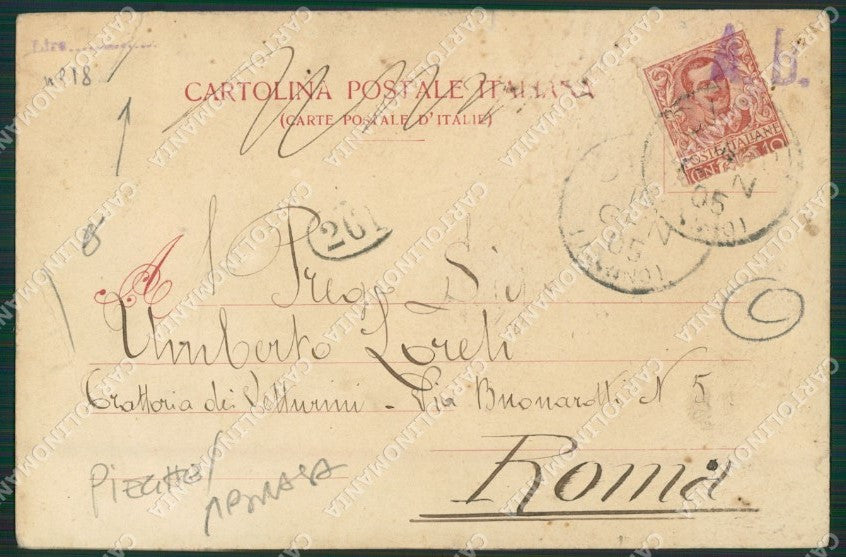 Lire
n° 18
A. b.
CARTOLINA POSTALE ITALIANA
(CARTE POSTALE D'ITALIE)
POSTE ITALIANE
CENT. 10
05
05
201
A l Preg. Sig.
Umberto Loreti
Trattoria dei Vetturini - Via Buonarotti N 5
Roma
C
PIEGHE/
CARTOLINOMANIA